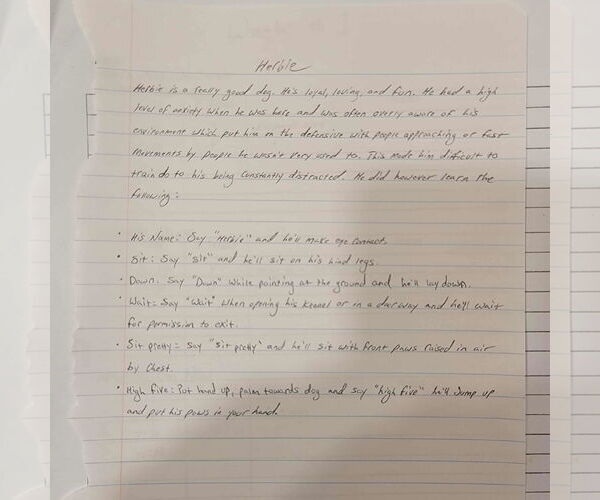 Herbie
Herbie is a really good dog. He's loyal, loving, and fun. He had a high
level of anxiety when he was here and was often overly aware of his
environment which put him on the defensive with people approaching or fast
movements by people he wasn't very used to. This made him difficult to
train do to his being constantly distracted. He did however learn the
following:
• His Name: Say "Herbie" and he'll make eye contact.
• Sit: Say "sit" and he'll sit on his hind legs.
• Down: Say "Down" while pointing at the ground and he'll lay down.
• Wait: Say "Wait" when opening his kennel or in a doorway and he'll wait
for permission to exit.
• Sit pretty: Say "sit pretty" and he'll sit with front paws raised in air
by chest.
• High five: Put hand up, palm towards dog and say "high five" he'll jump up
and put his paws in your hand.